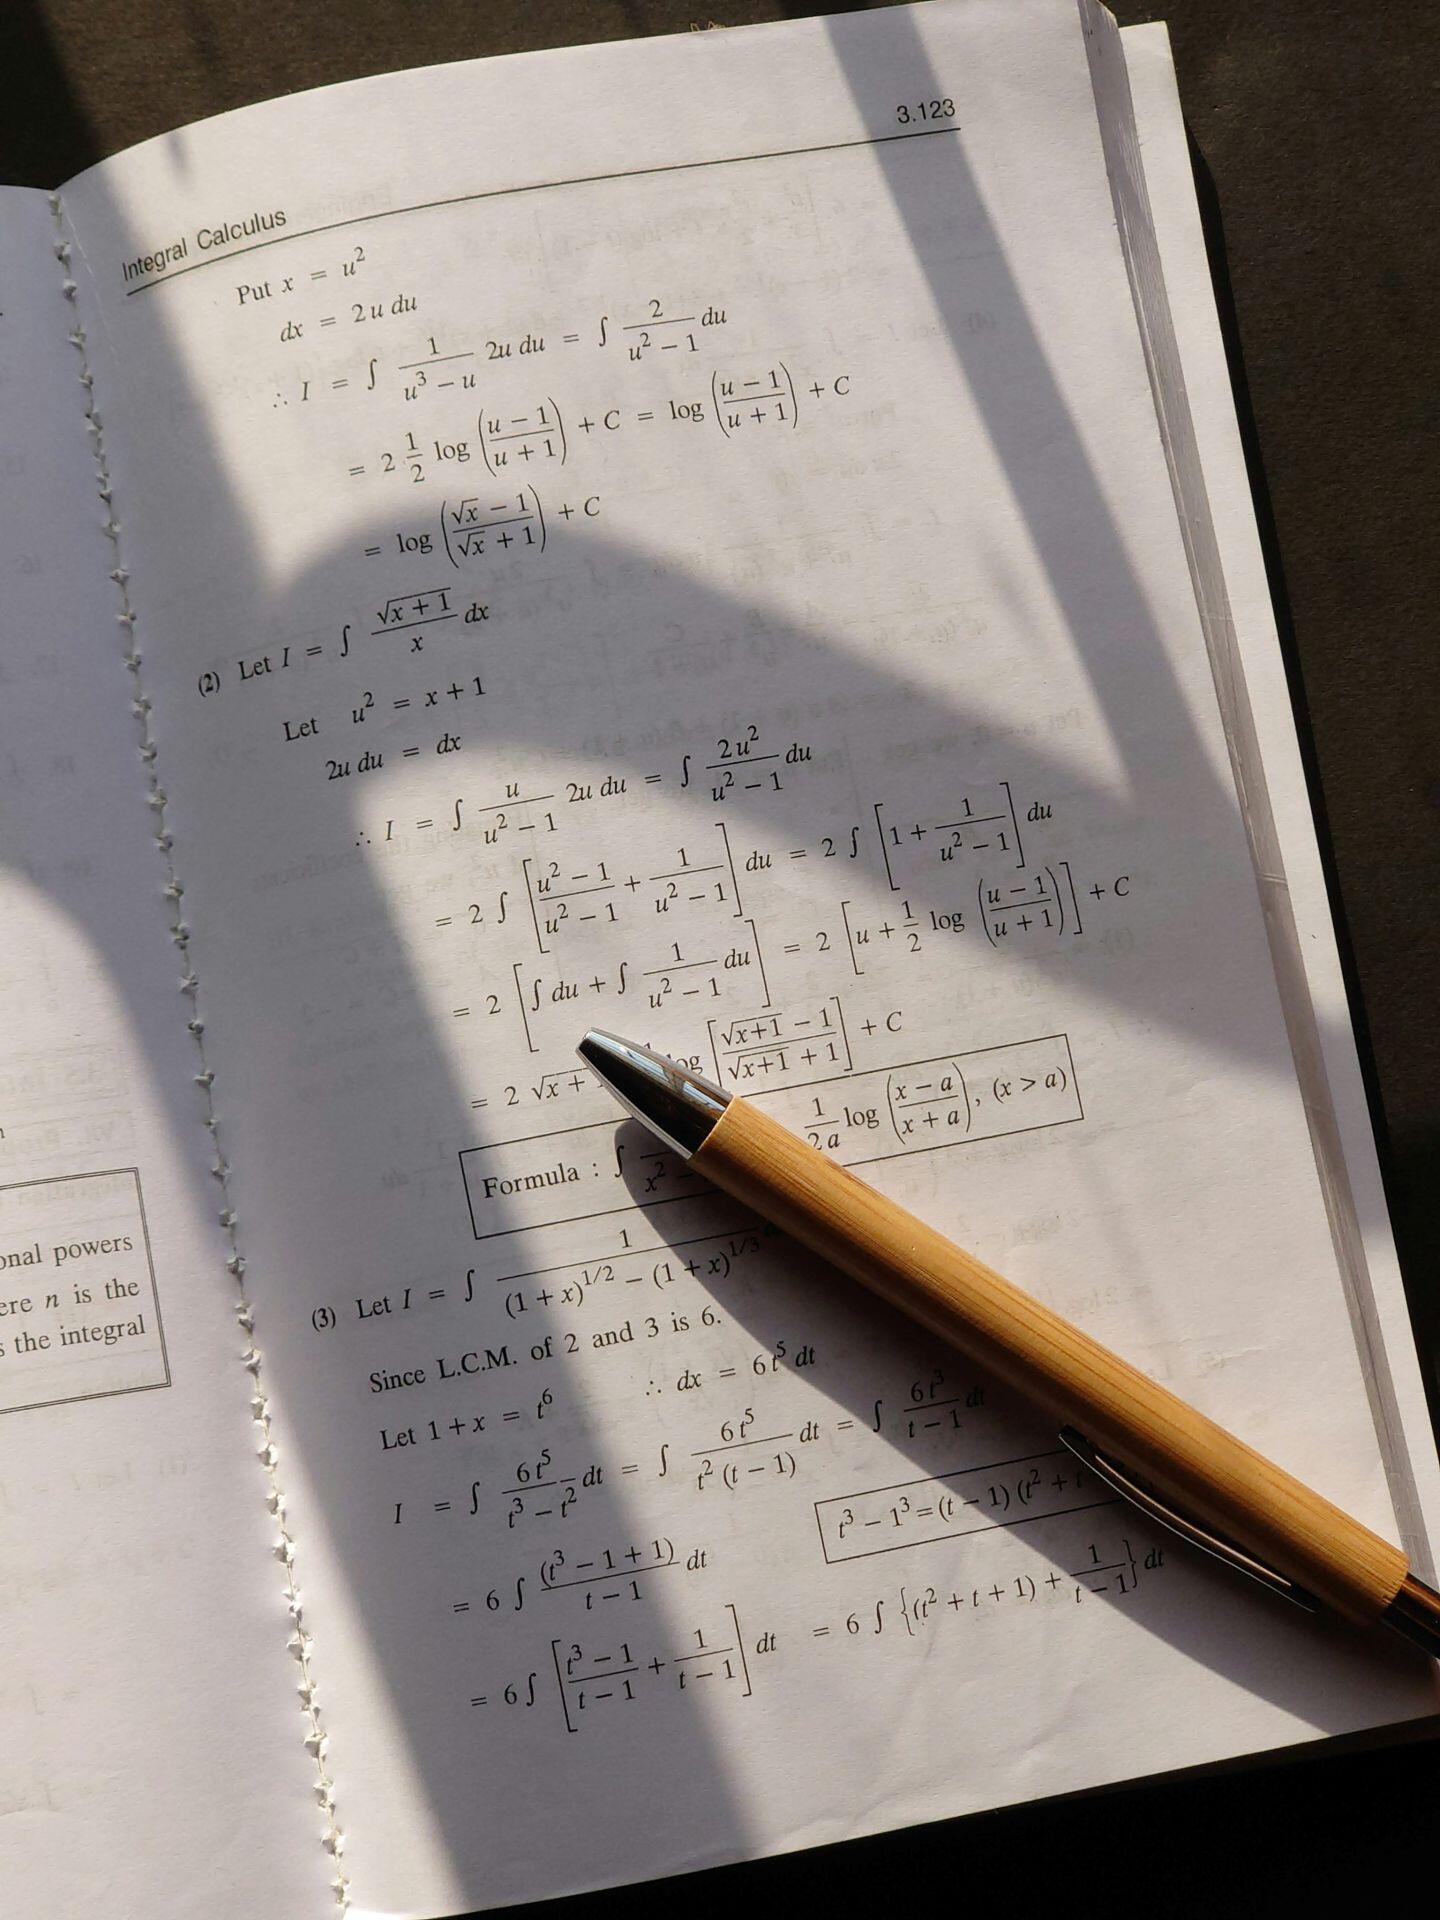 onal powers
ere n is the
s the integral
3.123
Integral Calculus
Put x = u²
dx = 2u du
∴ I = ∫ 1/(u³ − u) 2u du = ∫ 2/(u² − 1) du
= 2 1/2 log ((u − 1)/(u + 1)) + C = log ((u − 1)/(u + 1)) + C
= log ((√x − 1)/(√x + 1)) + C
(2) Let I = ∫ √(x + 1)/x dx
Let u² = x + 1
2u du = dx
∴ I = ∫ u/(u² − 1) 2u du = ∫ 2u²/(u² − 1) du
= 2 ∫ [(u² − 1)/(u² − 1) + 1/(u² − 1)] du = 2 ∫ [1 + 1/(u² − 1)] du
= 2 [∫ du + ∫ 1/(u² − 1) du] = 2 [u + 1/2 log ((u − 1)/(u + 1))] + C
= 2 √x + og [(√x+1 − 1)/(√x+1 + 1)] + C
Formula : ∫ x² 1/2a log ((x − a)/(x + a)), (x > a)
(3) Let I = ∫ 1/((1 + x)^1/2 − (1 + x)^1/3
Since L.C.M. of 2 and 3 is 6.
Let 1 + x = t⁶ ∴ dx = 6t⁵ dt
I = ∫ 6t⁵/(t³ − t²) dt = ∫ 6t⁵/(t² (t − 1)) dt = ∫ 6t³/(t − 1) dt
t³ − 1³ = (t − 1) (t² + t
= 6 ∫ (t³ − 1 + 1)/(t − 1) dt
= 6 ∫ [(t³ − 1)/(t − 1) + 1/(t − 1)] dt = 6 ∫ {(t² + t + 1) + 1/(t − 1)} dt